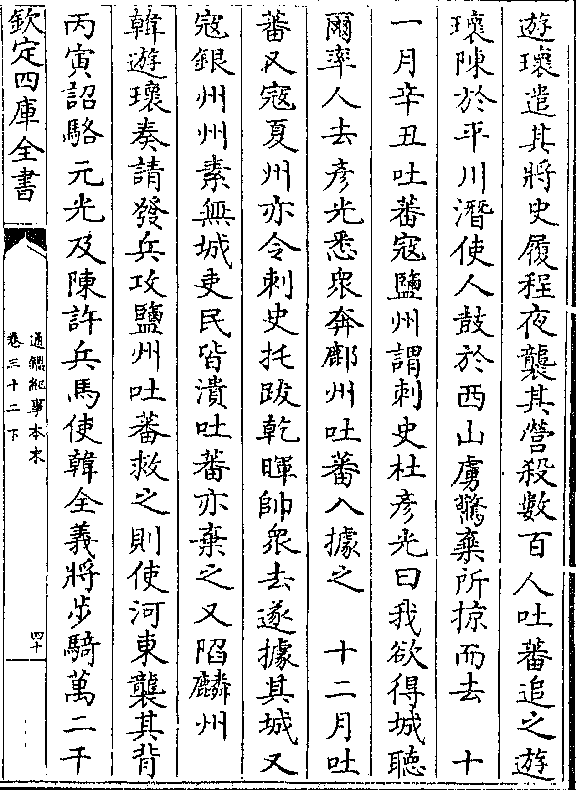 遊瓌遣其將史履程夜襲其營殺數百人吐蕃追之遊
瓌陳於平川潛使人鼓於西山虜驚棄所掠而去　十
一月辛丑吐蕃寇鹽州謂刺史杜彥光曰我欲得城聽
爾率人去彥光悉衆奔鄜州吐蕃入據之　十二月吐
蕃又寇夏州亦令刺史托跋乾暉帥衆去遂據其城又
寇銀州州素無城吏民皆潰吐蕃亦棄之又陷麟州
韓遊瓌奏請發兵攻鹽州吐蕃救之則使河東襲其背
丙寅詔駱元光及陳許兵馬使韓全義將步騎萬二千
欽定四庫全書
通鑑紀事本末
卷三十二下
四十